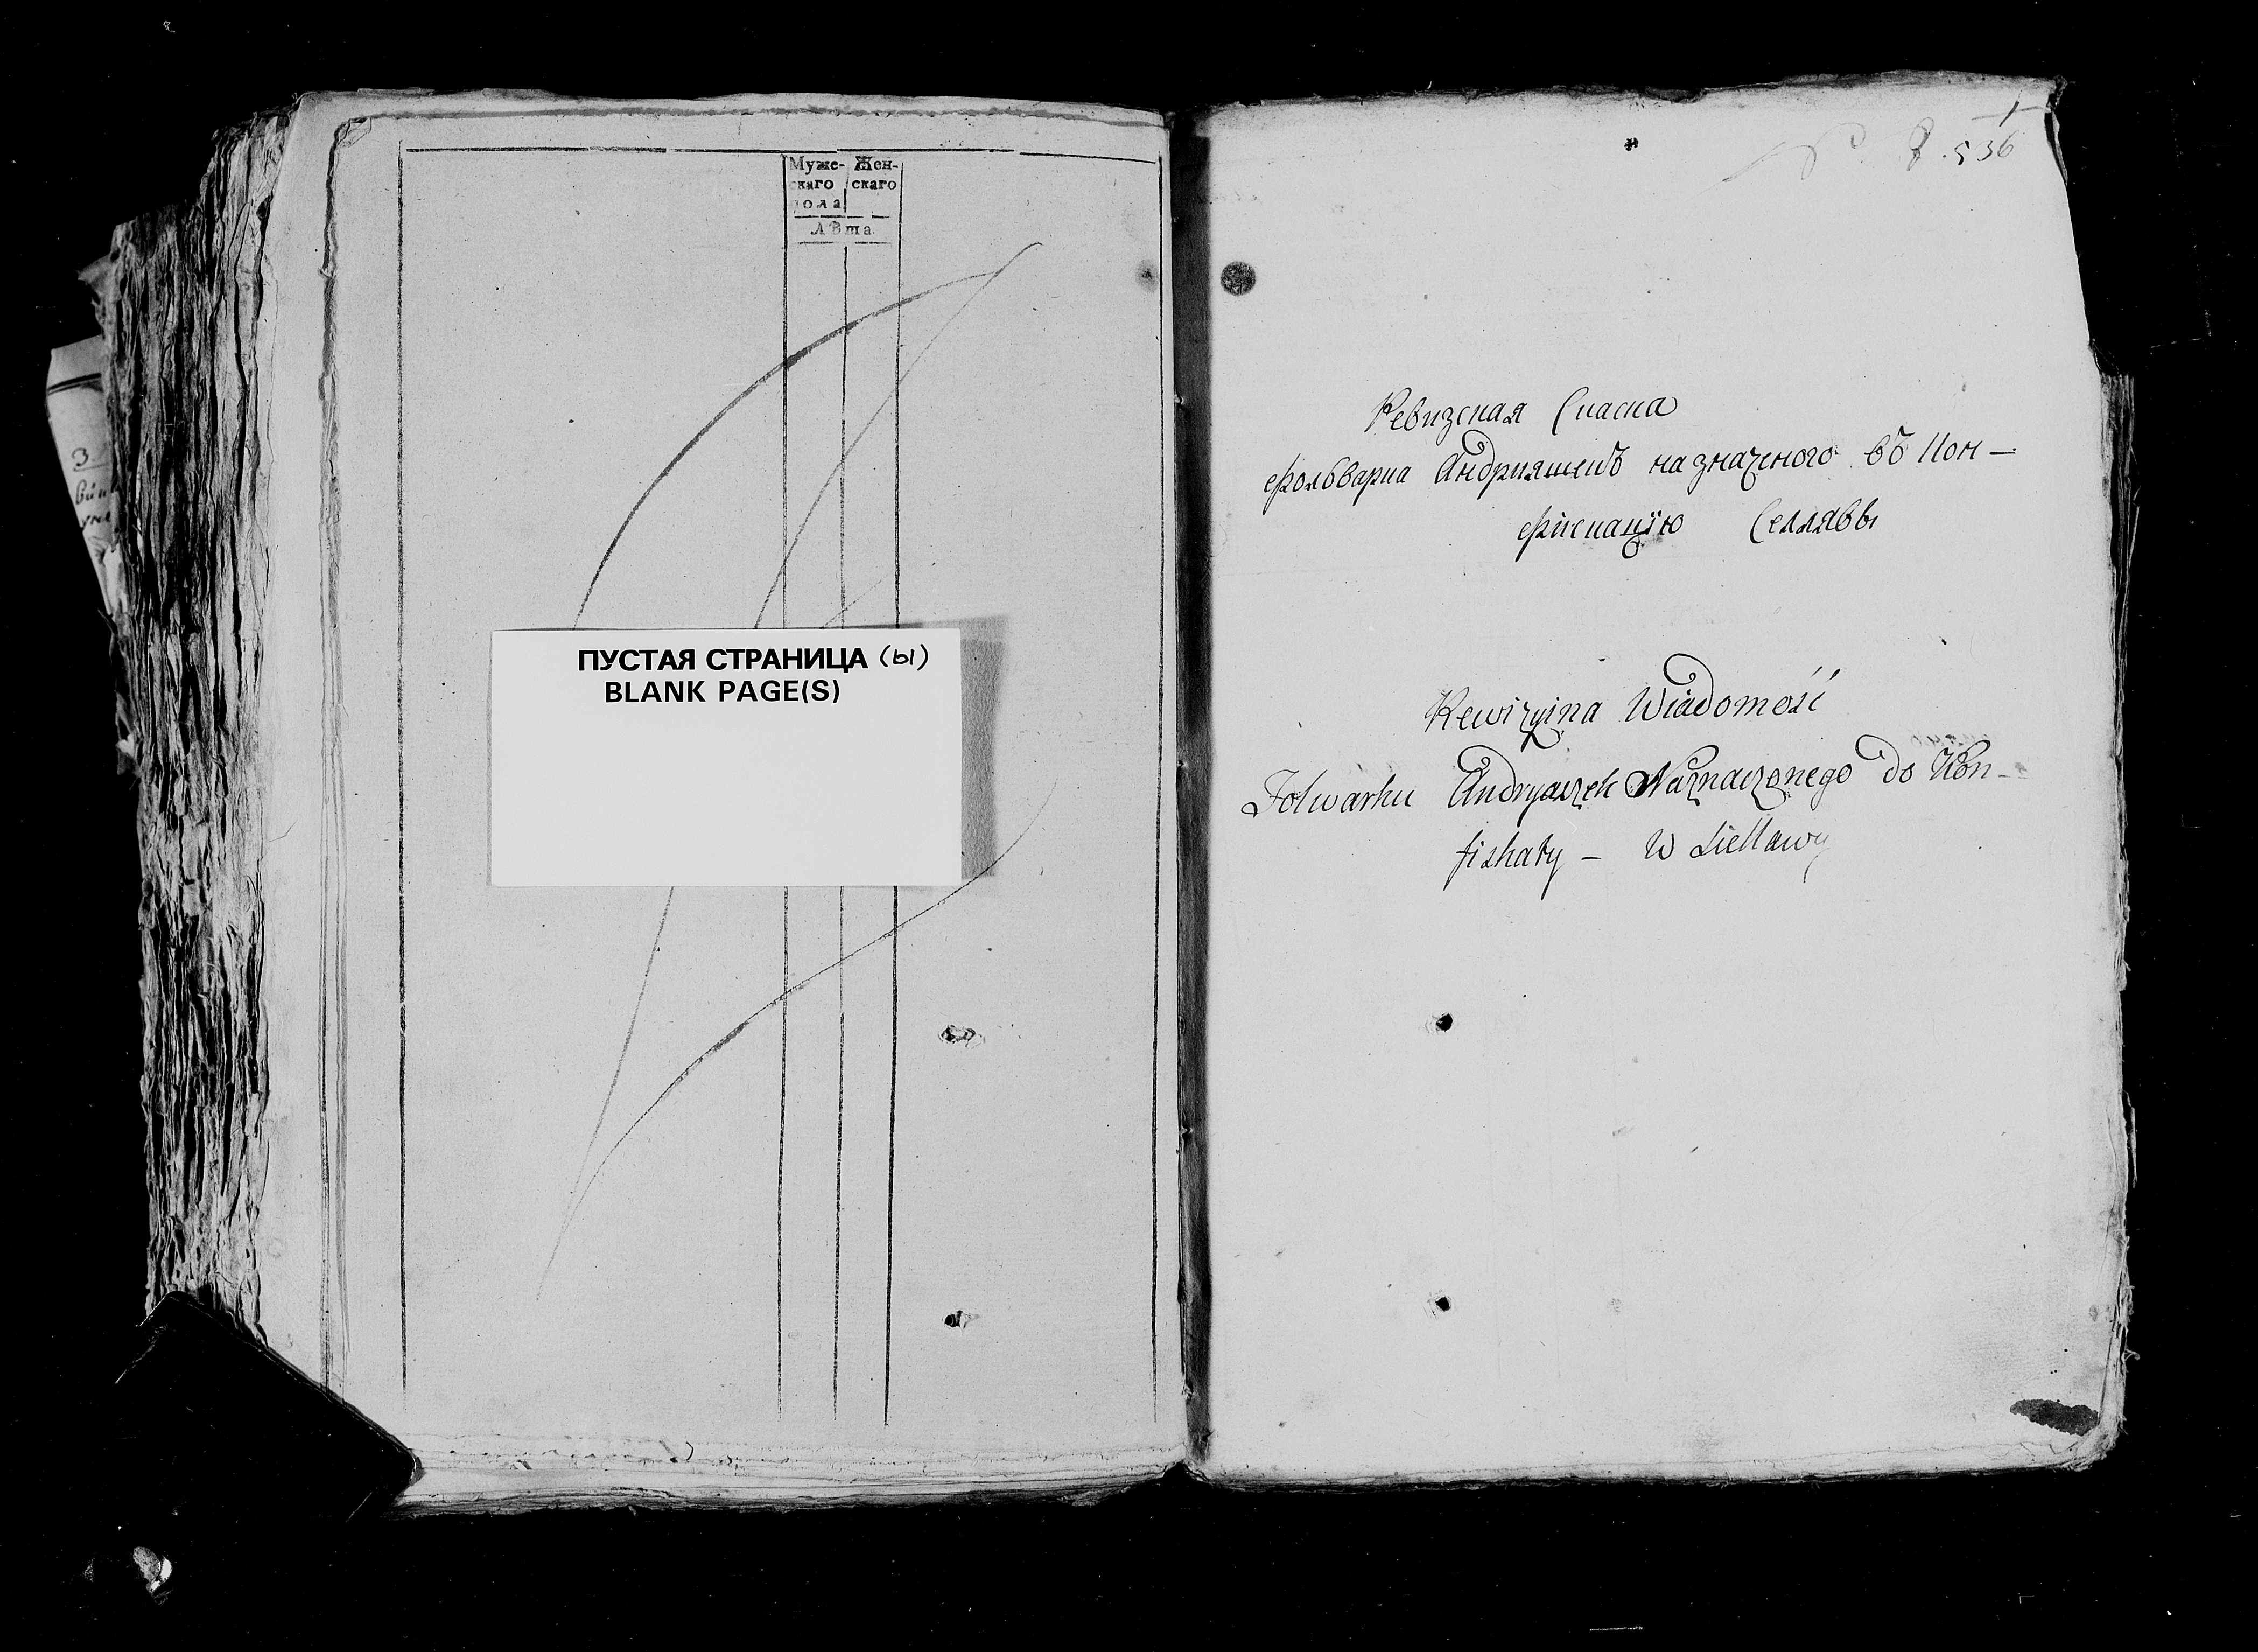 Муже- Жен-
скаго скаго
пола
Лѣта
ПУСТАЯ СТРАНИЦА (ы)
BLANK PAGE(S)
3
536
Ревизская Скаска
фольварка Андрияшекъ назначеного въ Кон-
фискацїю Селлявы
Rewizyina Wiadomość
Folwarku Andryaszek Naznaczonego do Kon-
fiskaty - W Siellawy